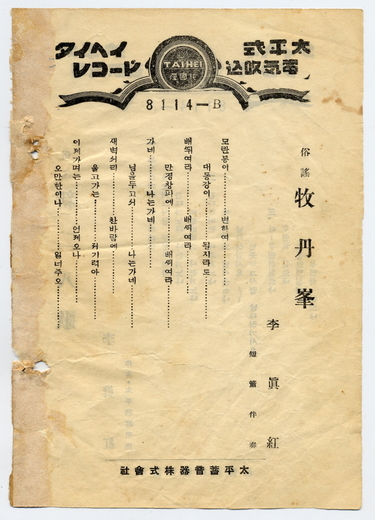 タイヘイ
レコード
TAIHEI
太平式
電気吹込
8114—B
俗謠
牧丹峯
李眞紅
短簫伴奏
모란봉이………변하여………
대동강이………될지라도………
배띄여라………배띄여라………
만경창파에………배띄여라………
가네………나는가네………
님을두고서………나는가네………
새벽서리………찬바람에………
울고가는………기럭아………
이제가며는………언제오나………
오만한이나………일너주오………
太平蓄音器株式會社